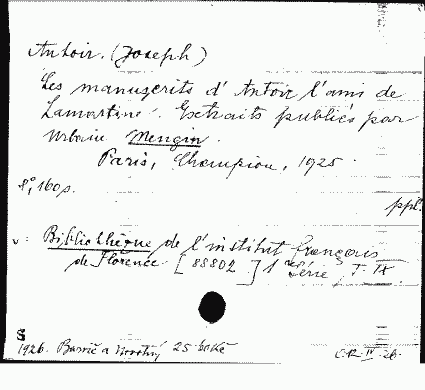 Antoir. (Joseph)
Les manuscrits d'Antoir l'ami de
Lamartine. Extraits publiés par
Urbain Mengin.
Paris, Champion, 1925.
8°, 160 p.
ppl.
v: Bibliothèque de l'institut français
de Florence [88802] 1re Série, T. IX.
S
1926. Barvič a Novotný 25 
C.R. IV. 26.